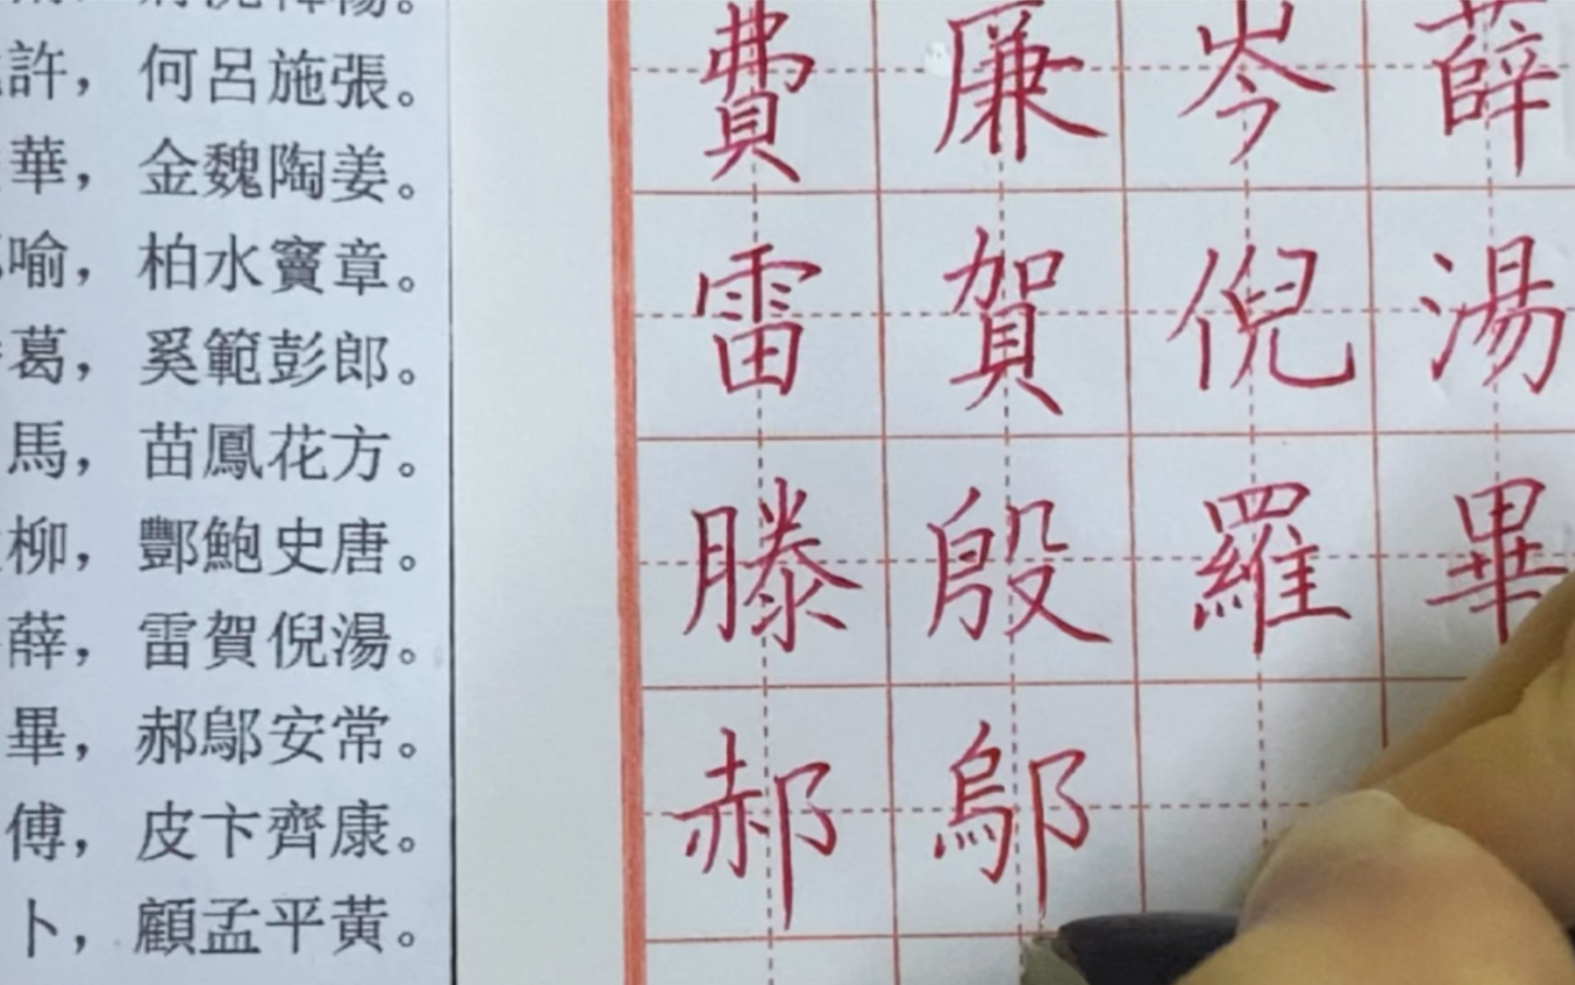 許，何呂施張。
華，金魏陶姜。
喻，柏水竇章。
葛，奚範彭郎。
馬，苗鳳花方。
柳，酆鮑史唐。
薛，雷賀倪湯。
畢，郝鄔安常。
傅，皮卞齊康。
卜，顧孟平黃。
費廉岑薛
雷賀倪湯
滕殷羅畢
郝鄔